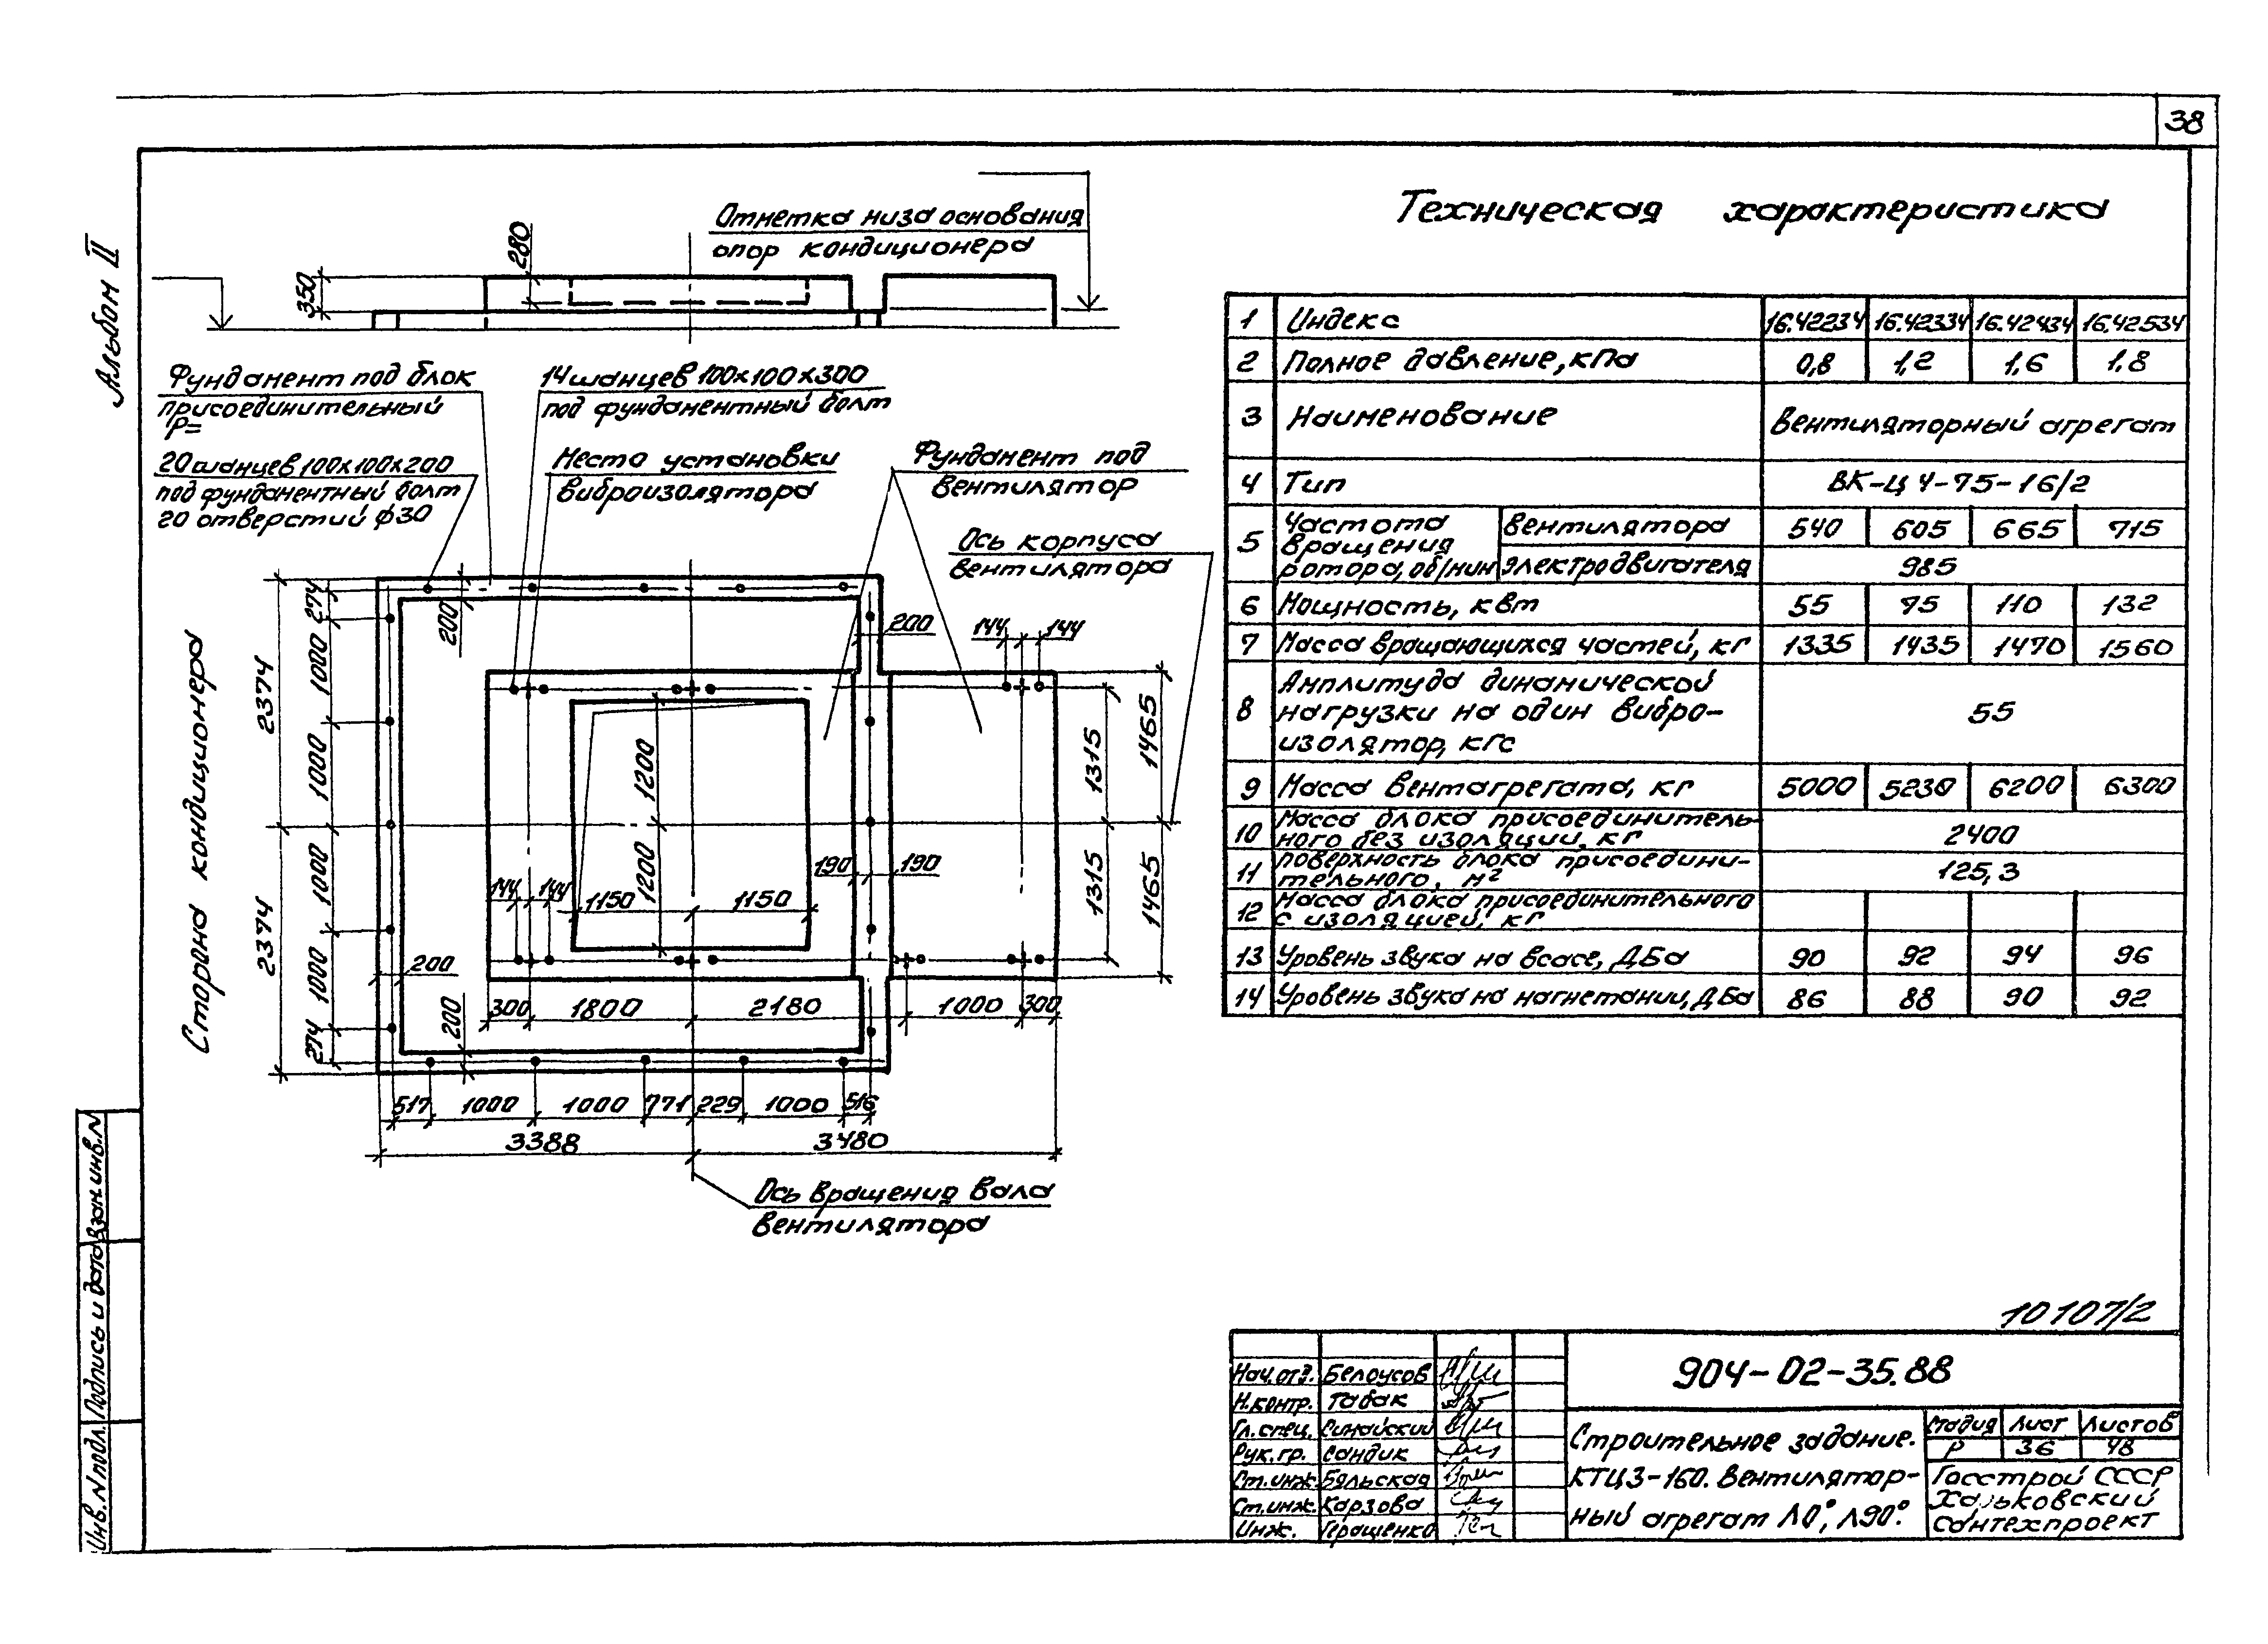 38
Альбом II
Отметка низа основания
опор кондиционера
280
350
Фундамент под блок
присоединительный
P=
14 шанцев 100х100х300
под фундаментный болт
20 шанцев 100х100х200
под фундаментный болт
20 отверстий ф30
Место установки
виброизолятора
Фундамент под
вентилятор
Ось корпуса
вентилятора
Сторона кондиционера
2374
2374
274
1000
1000
1000
1000
274
200
200
144
144
1200
1200
1315
1315
1465
1465
190
190
144
144
1150
1150
200
200
300
1800
2180
1000
300
517
1000
1000
771
229
1000
516
3388
3480
Ось вращения вала
вентилятора
Техническая характеристика
1 Индекс 16.42234 16.42334 16.42434 16.42534
2 Полное давление, кПа 0,8 1,2 1,6 1.8
3 Наименование Вентиляторный агрегат
4 Тип ВК-Ц 4-75-16/2
5 Частота вращения ротора, об/мин
вентилятора 540 605 665 715
электродвигателя 985
6 Мощность, квт 55 75 110 132
7 Масса вращающихся частей, кг 1335 1435 1470 1560
8 Амплитуда динамической
нагрузки на один вибро-
изолятор, кгс 55
9 Масса вентагрегата, кг 5000 5230 6200 6300
10 Масса блока присоединитель-
ного без изоляции, кг 2400
11 Поверхность блока присоедини-
тельного, м² 125,3
12 Масса блока присоединительного
с изоляцией, кг
13 Уровень звука на всасе, ДБа 90 92 94 96
14 Уровень звука на нагнетании, ДБа 86 88 90 92
10107/2
904-02-35.88
Нач.отд. Белоусов
Н.контр. Табак
Гл.спец. Синайский
Рук.гр. Сандик
Ст.инж. Бяльская
Ст.инж. Карзова
Инж. Геращенко
Строительное задание.
КТЦ3-160. Вентилятор-
ный агрегат Л0°, Л90°.
Стадия Лист Листов
Р 36 48
Госстрой СССР
Харьковский
Сантехпроект
Инв. N подл. Подпись и дата Взам.инв.N